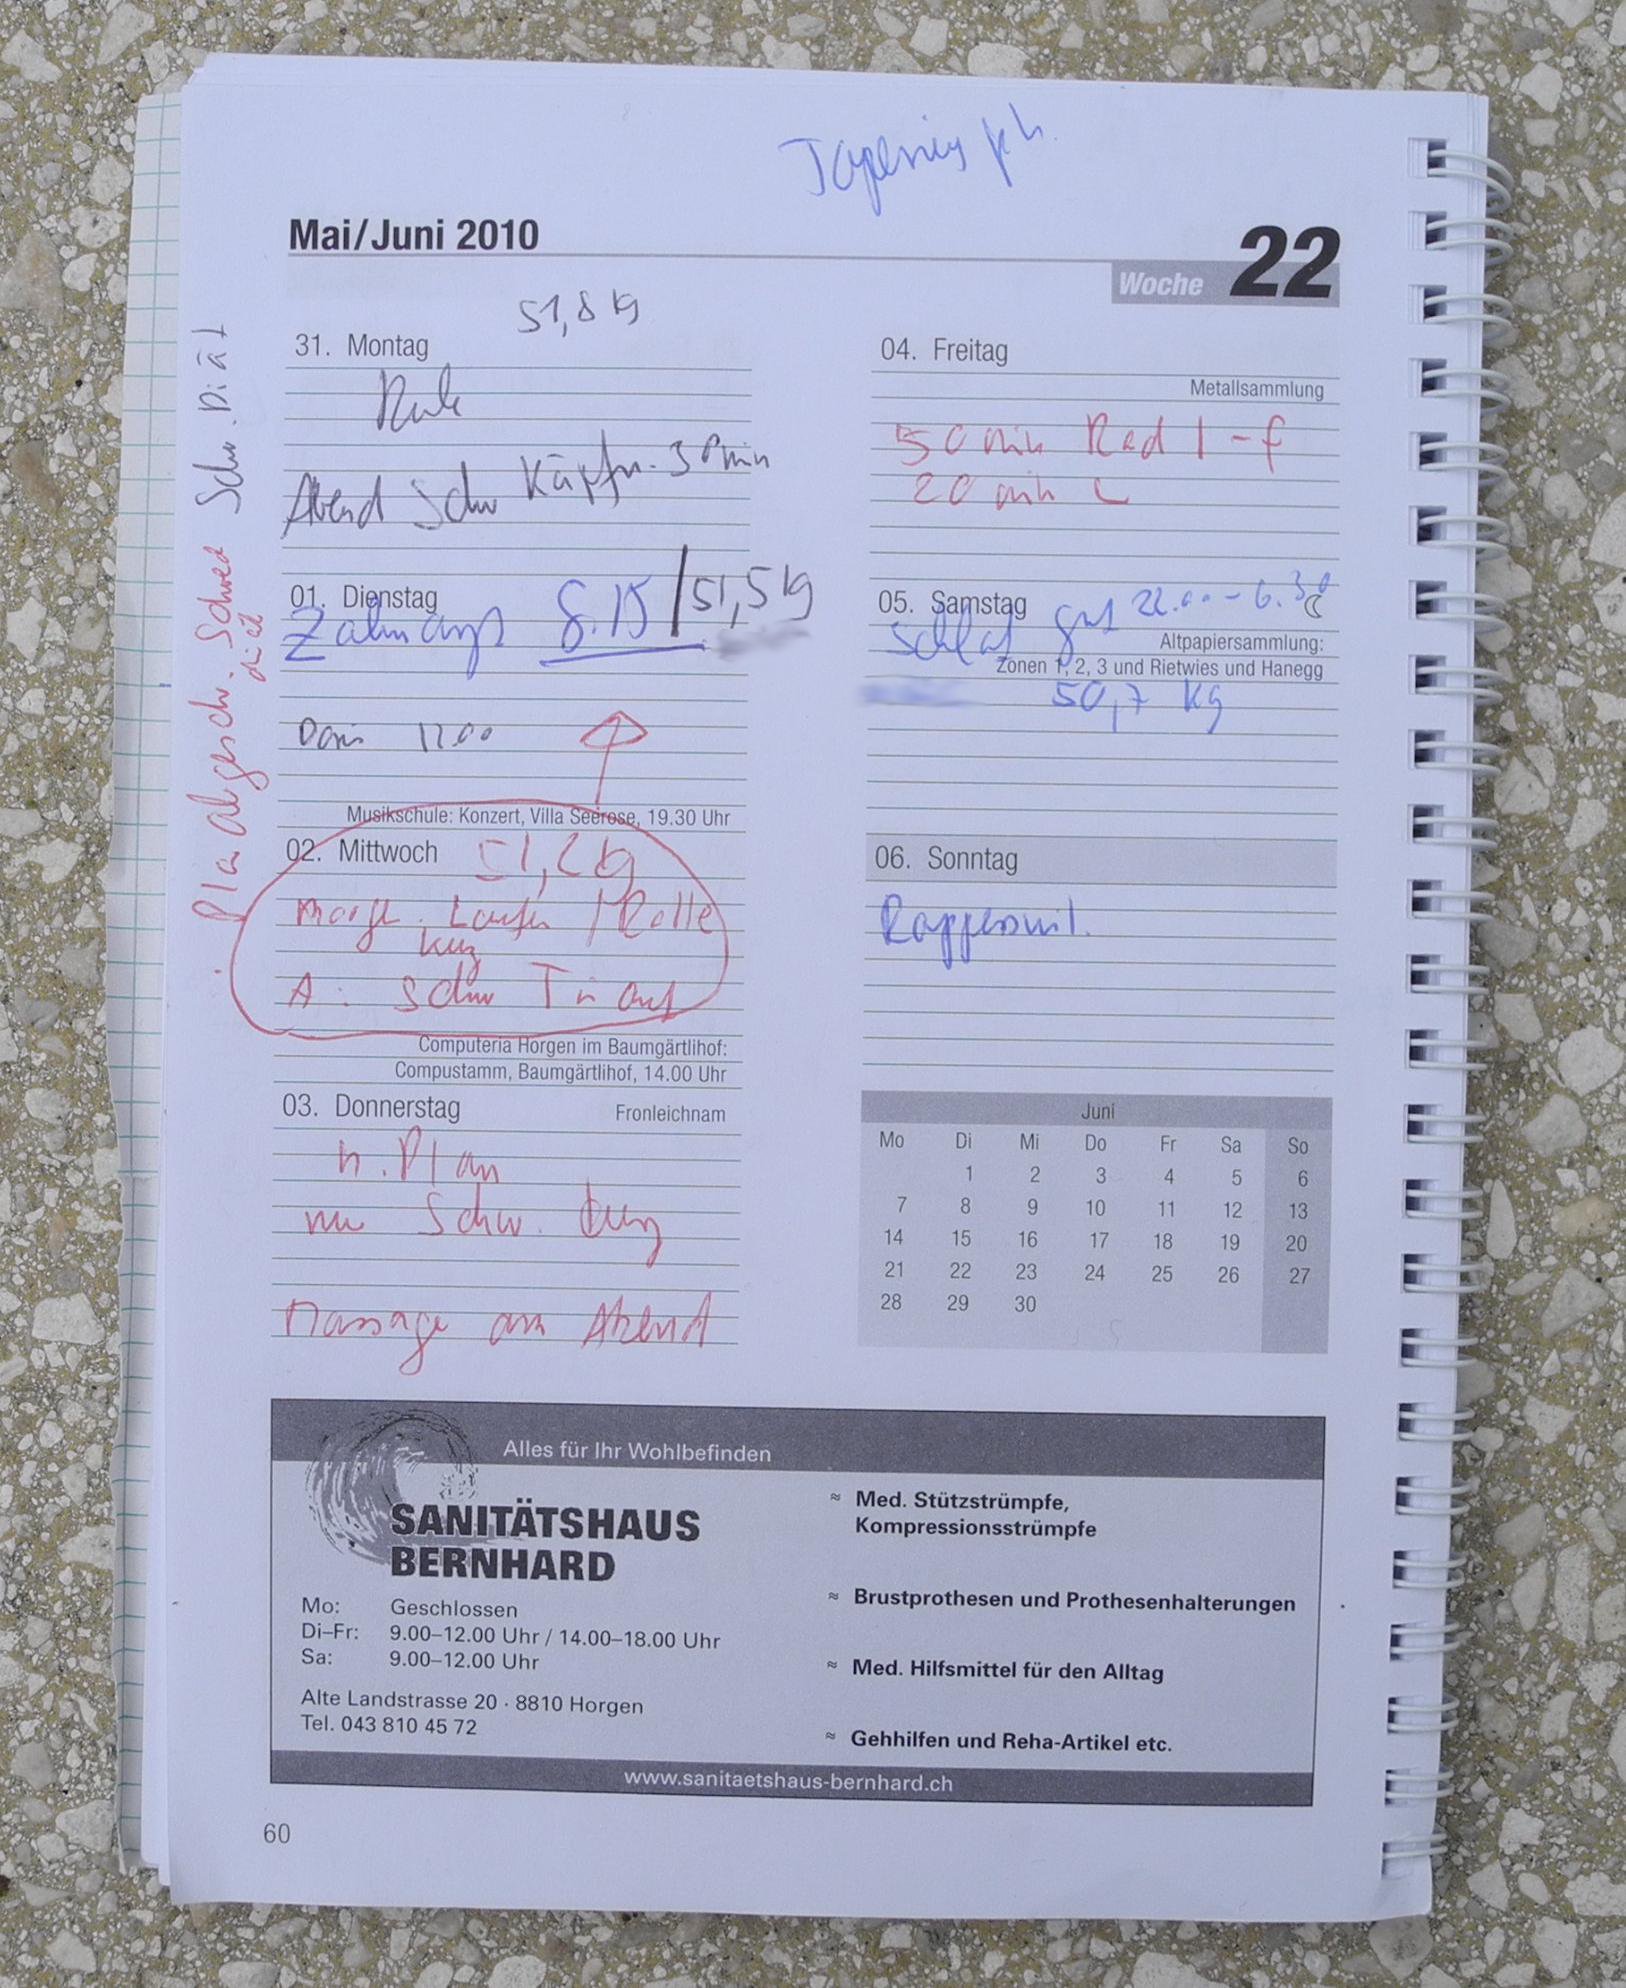 Mai/Juni 2010
Woche 22
51,8 kg
31. Montag
Ruhe
Abend Schw Käpfn. 30 min
01. Dienstag
Zahnarzt 8.15 / 51,5 kg
1200
Musikschule: Konzert, Villa Seerose, 19.30 Uhr
02. Mittwoch 51,2 kg
Morge. Laufen / Rolle
kurz
A: Schw Tri
Computeria Horgen im Baumgärtlihof:
Compustamm, Baumgärtlihof, 14.00 Uhr
03. Donnerstag
Fronleichnam
n. Plan
nur Schw. kurz
Massage am Abend
Schw. Diät
Plan abgesch. Schwed
diät
04. Freitag
Metallsammlung
50 min Rad l-f
20 min L
05. Samstag
Schlaf gut 22.00 - 6.30
Altpapiersammlung:
Zonen 1, 2, 3 und Rietwies und Hanegg
50,7 kg
06. Sonntag
Rapperswil.
Juni
Mo Di Mi Do Fr Sa So
1 2 3 4 5 6
7 8 9 10 11 12 13
14 15 16 17 18 19 20
21 22 23 24 25 26 27
28 29 30
Alles für Ihr Wohlbefinden
SANITÄTSHAUS
BERNHARD
Mo: Geschlossen
Di–Fr: 9.00–12.00 Uhr / 14.00–18.00 Uhr
Sa: 9.00–12.00 Uhr
Alte Landstrasse 20 · 8810 Horgen
Tel. 043 810 45 72
≈ Med. Stützstrümpfe,
Kompressionsstrümpfe
≈ Brustprothesen und Prothesenhalterungen
≈ Med. Hilfsmittel für den Alltag
≈ Gehhilfen und Reha-Artikel etc.
www.sanitaetshaus-bernhard.ch
60